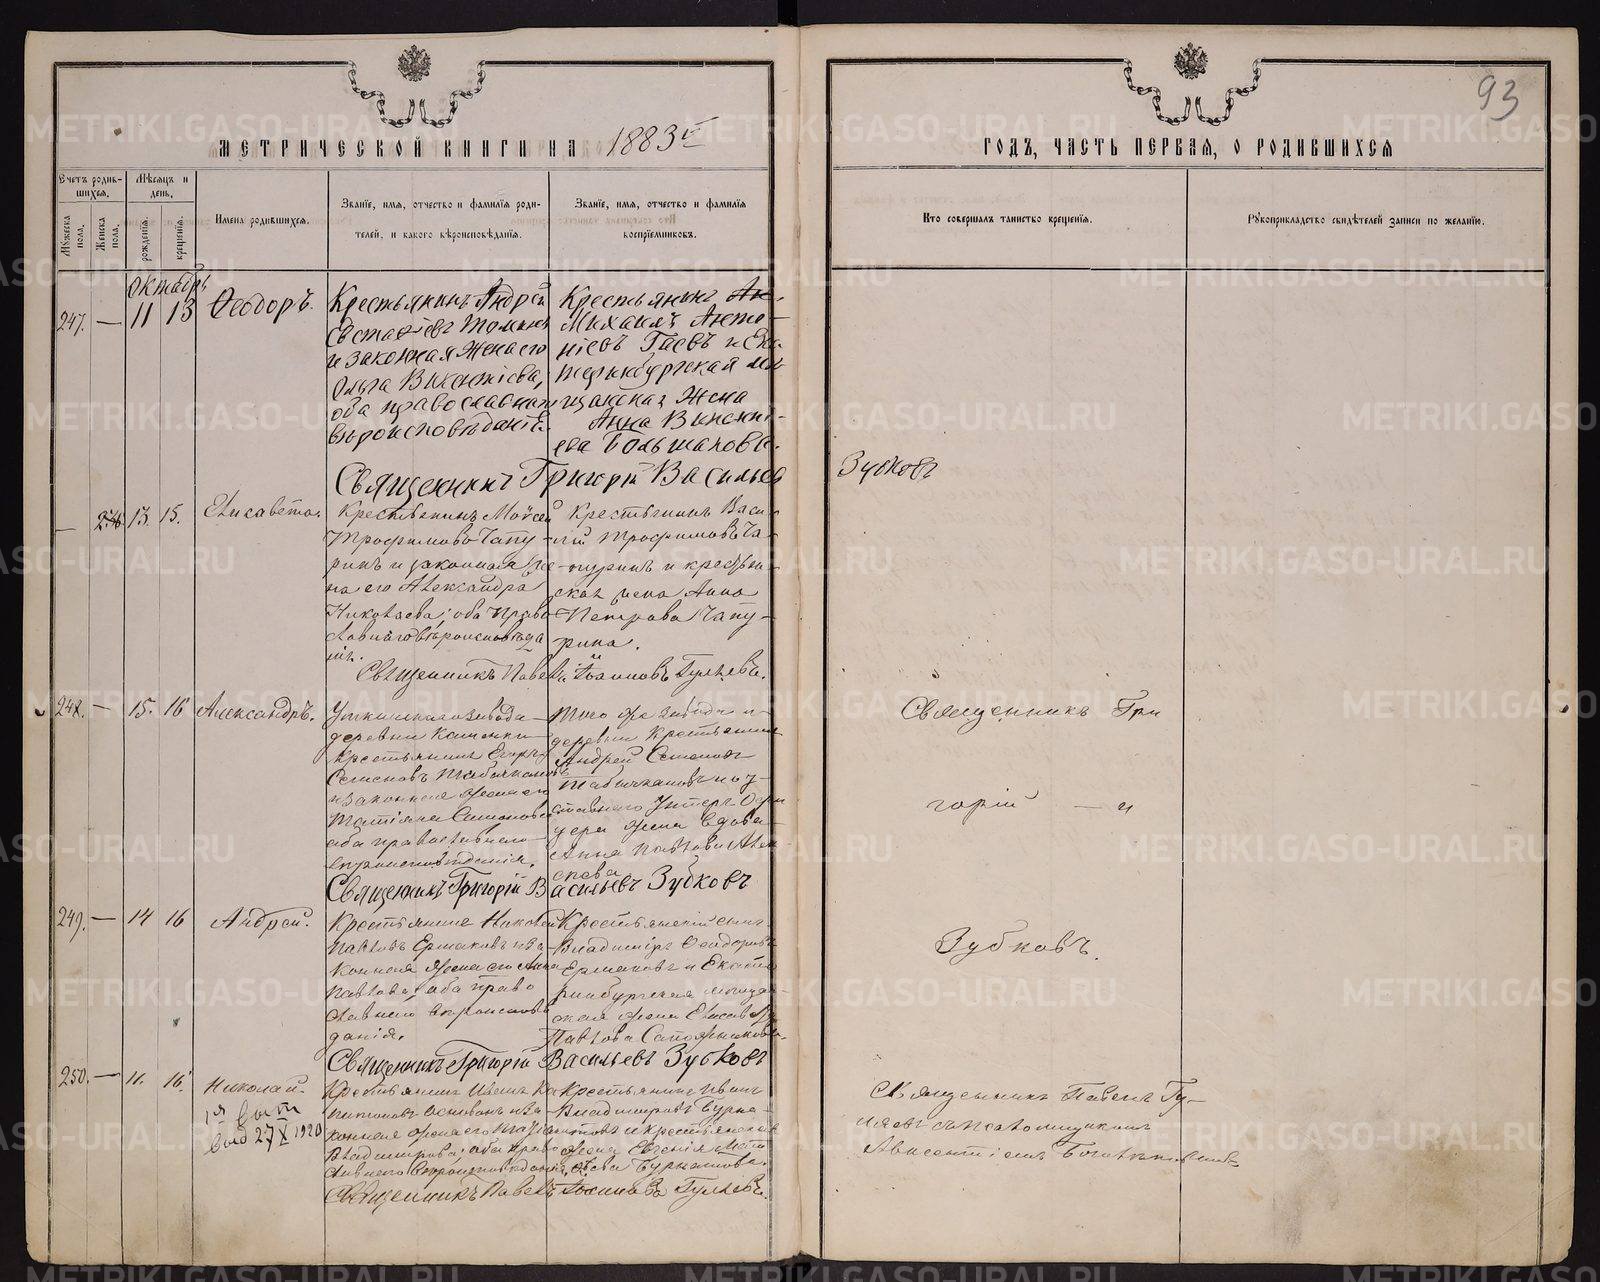 93
МЕТРИЧЕСКОЙ КНИГИ НА 1883
ГОДЪ, ЧАСТЬ ПЕРВАЯ, О РОДИВШИХСЯ
Счетъ родив-
шихся.
Мѣсяцъ и
день.
Мужеска
пола.
Женска
пола.
рожденія.
крещенія.
Имена родившихся.
Званіе, имя, отчество и фамилія роди-
телей, и какого вѣроисповѣданія.
Званіе, имя, отчество и фамилія
воспріемниковъ.
Кто совершалъ таинство крещенія.
Рукоприкладство свидѣтелей записи по желанію.
Октябрь
247. — 11 13 Ѳеодоръ.
Крестьянинъ Андрей
и законная жена его
Ольга Викентіева,
оба православнаго
вѣроисповѣданія.
Крестьянинъ Ан-
Михаилъ Анто-
ніевъ Гаевъ и Ека-
теринбургская мѣ-
щанская жена
Анна Викенті-
ева Большакова.
Священникъ Григорій Васильевъ
Зубковъ
— 13. 15. Елисавета.
Крестьянинъ Моѵсей
Трофимовъ Чапу-
ринъ и законная же-
на его Александра
Николаева, оба право
славнаго вѣроисповѣда
нія.
Крестьянинъ Васи-
лій Трофимовъ Ча-
пуринъ и крестьян-
ская жена Анна
Петрова Чапу-
рина.
Священникъ Павелъ Іоанновъ Гуляевъ.
248. — 15. 16 Александръ.
Уткинскаго завода
деревни Каменки
крестьянинъ Егоръ
Семеновъ
и законная жена его
Татіана Семенова
оба православнаго
вѣроисповѣданія.
Того же завода и
деревни крестьянинъ
Андрей Семеновъ
дера жена вдова
Анна Павлова
Священникъ Григорій Васильевъ Зубковъ
Священникъ Гри
горій — и
Зубковъ.
249. — 14 16 Андрей.
Крестьянинъ Николай
Павловъ Ермаковъ и за-
конная жена его Анна
Павлова, оба право
славнаго вѣроисповѣ
данія.
Крестьянскій сынъ
Владиміръ Ѳеодоровъ
Ермаковъ и Екате
ринбургская мѣщан-
ская жена Елисавета
Павлова Сапожникова.
Священникъ Григорій Васильевъ Зубковъ
250. — 11. 16. Николай.
27 X 1920
Крестьянинъ Иванъ Ка
питоновъ и за-
конная жена его
Владимірова, оба право
славнаго вѣроисповѣданія.
Крестьянинъ Иванъ
Владиміровъ Бурма-
товъ и крестьянская
жена Евгенія
Бурматова.
Священникъ Павелъ Іоанновъ Гуляевъ.
Священникъ Павелъ Гу-
ляевъ съ псаломщикомъ